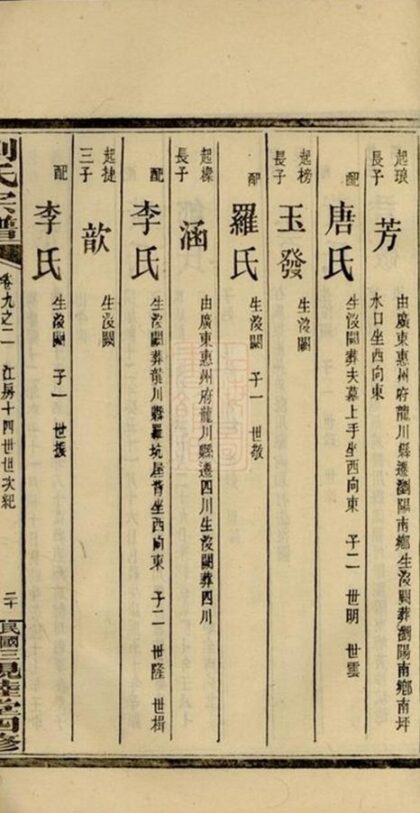 起琅長子
芳
由廣東惠州府龍川縣遷瀏陽南鄉生歿闕葬瀏陽南鄉南坪
水口坐西向東
配
唐氏
生歿闕葬夫墓上手坐西向東 子二 世明 世雲
起榜長子
玉發
生歿闕
配
羅氏
生歿闕 子一 世敬
起樑長子
涵
由廣東惠州府龍川縣遷四川生歿闕葬四川
配
李氏
生歿闕葬龍川縣羅坑屋背坐西向東 子二 世隆 世楫
起捷三子
歆
生歿闕
配
李氏
生歿闕 子一 世振
劉氏宗譜
卷九之二 江房十四世世次紀
二十
民國三 四修